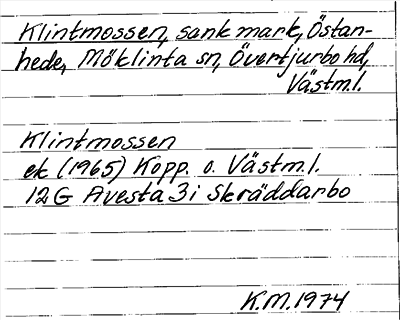 Klintmossen, sank mark, Östan-
hede, Möklinta sn, Övertjurbo hd,
Västm.l.
Klintmossen
ek (1965) Kopp. o. Västm.l.
12G Avesta 3i Skräddarbo
K.M.1974